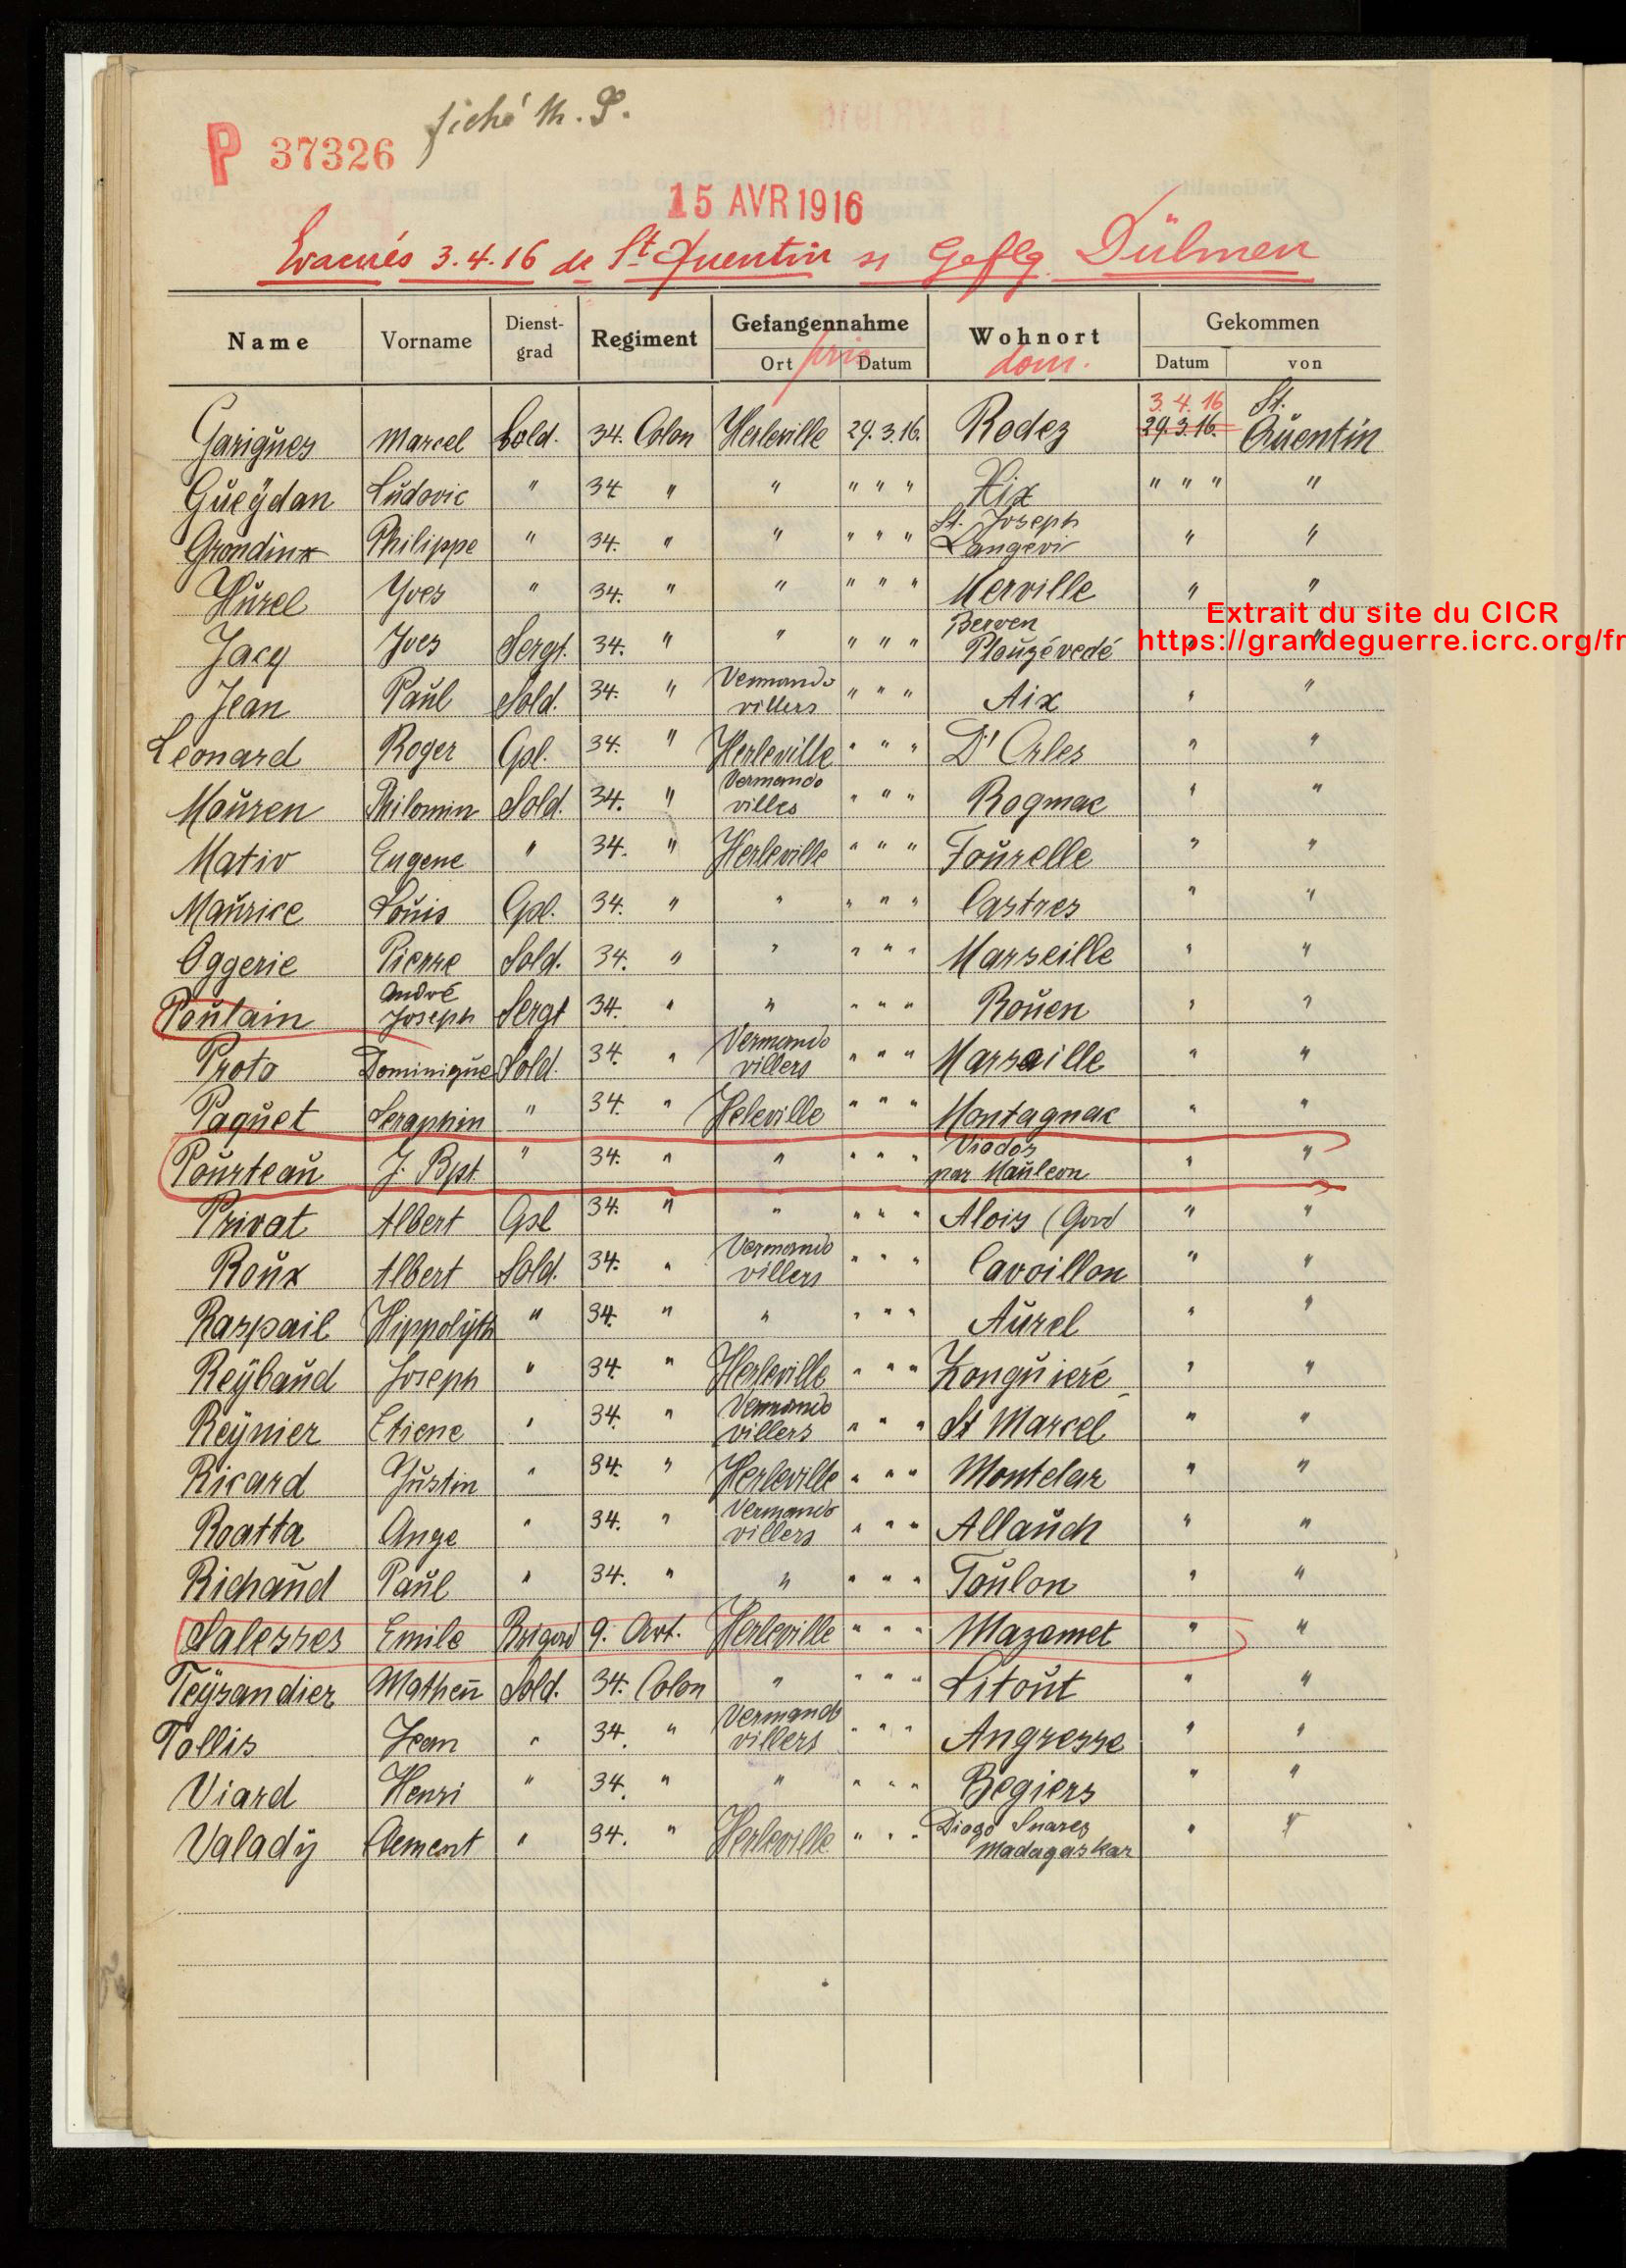 fiché M. P.
P 37326
15 AVR 1916
Evacués 3.4.16 de St Quentin s/ Geflg. Dülmen
Name Vorname Dienst-grad Regiment Gefangennahme Wohnort Gekommen
Ort Datum Datum von
pris dom.
3.4.16 St.
Garigues Marcel Sold. 34. Colon Herleville 29.3.16. Rodez 29.3.16. Quentin
Gueydan Ludovic " 34 " " " " " Aix " " " "
Grondinx Philippe " 34. " " " " " St. Joseph Langevi " "
Hurel Yves " 34. " " " " " Merville " "
Extrait du site du CICR
https://grandeguerre.icrc.org/fr
Jacq Yves Sergt. 34. " " " " " Berven Plouzévedé " "
Jean Paul Sold. 34. " Vermando villers " " " Aix " "
Leonard Roger Gpl. 34. " Herleville " " " D'Orles " "
Mouren Philomin Sold. 34. " Vermando villes " " " Rogmac " "
Mativ Eugene " 34. " Herleville " " " Tourelle " "
Maurice Louis Gpl. 34. " " " " " Castres " "
Oggerie Pierre Sold. 34. " " " " " Marseille " "
Poulain André Joseph Sergt 34. " " " " " Rouen " "
Proto Dominique Sold. 34. " Vermando villers " " " Marseille " "
Paquet Seraphin " 34. " Heleville " " " Montagnac " "
Pourteau J. Bpt " 34. " " " " " Viodos par Mauleon " "
Privat Albert Gpl 34. " " " " " Alois (Gard " "
Roux Albert Sold. 34. " Vermando villers " " " Cavoillon " "
Raspail Hippolyth " 34. " " " " " Aurel " "
Reybaud Joseph " 34. " Herleville " " " Longuieré " "
Reynier Etiene " 34. " Vermando villers " " " St Marcel " "
Ricard Justin " 34. " Herleville " " " Montelar " "
Roatta Ange " 34. " Vermando villers " " " Allauch " "
Richaud Paul " 34. " " " " " Toulon " "
Salesses Emile Brigard 9. Art. Herleville " " " Mazamet " "
Teysandier Matheu Sold. 34. Colon " " " " Litout " "
Tollis Jean " 34. " Vermando villers " " " Angresse " "
Viard Henri " 34. " " " " " Begiers " "
Valady Clement " 34. " Herleville " " " Diogo Suarez Madagaskar " "